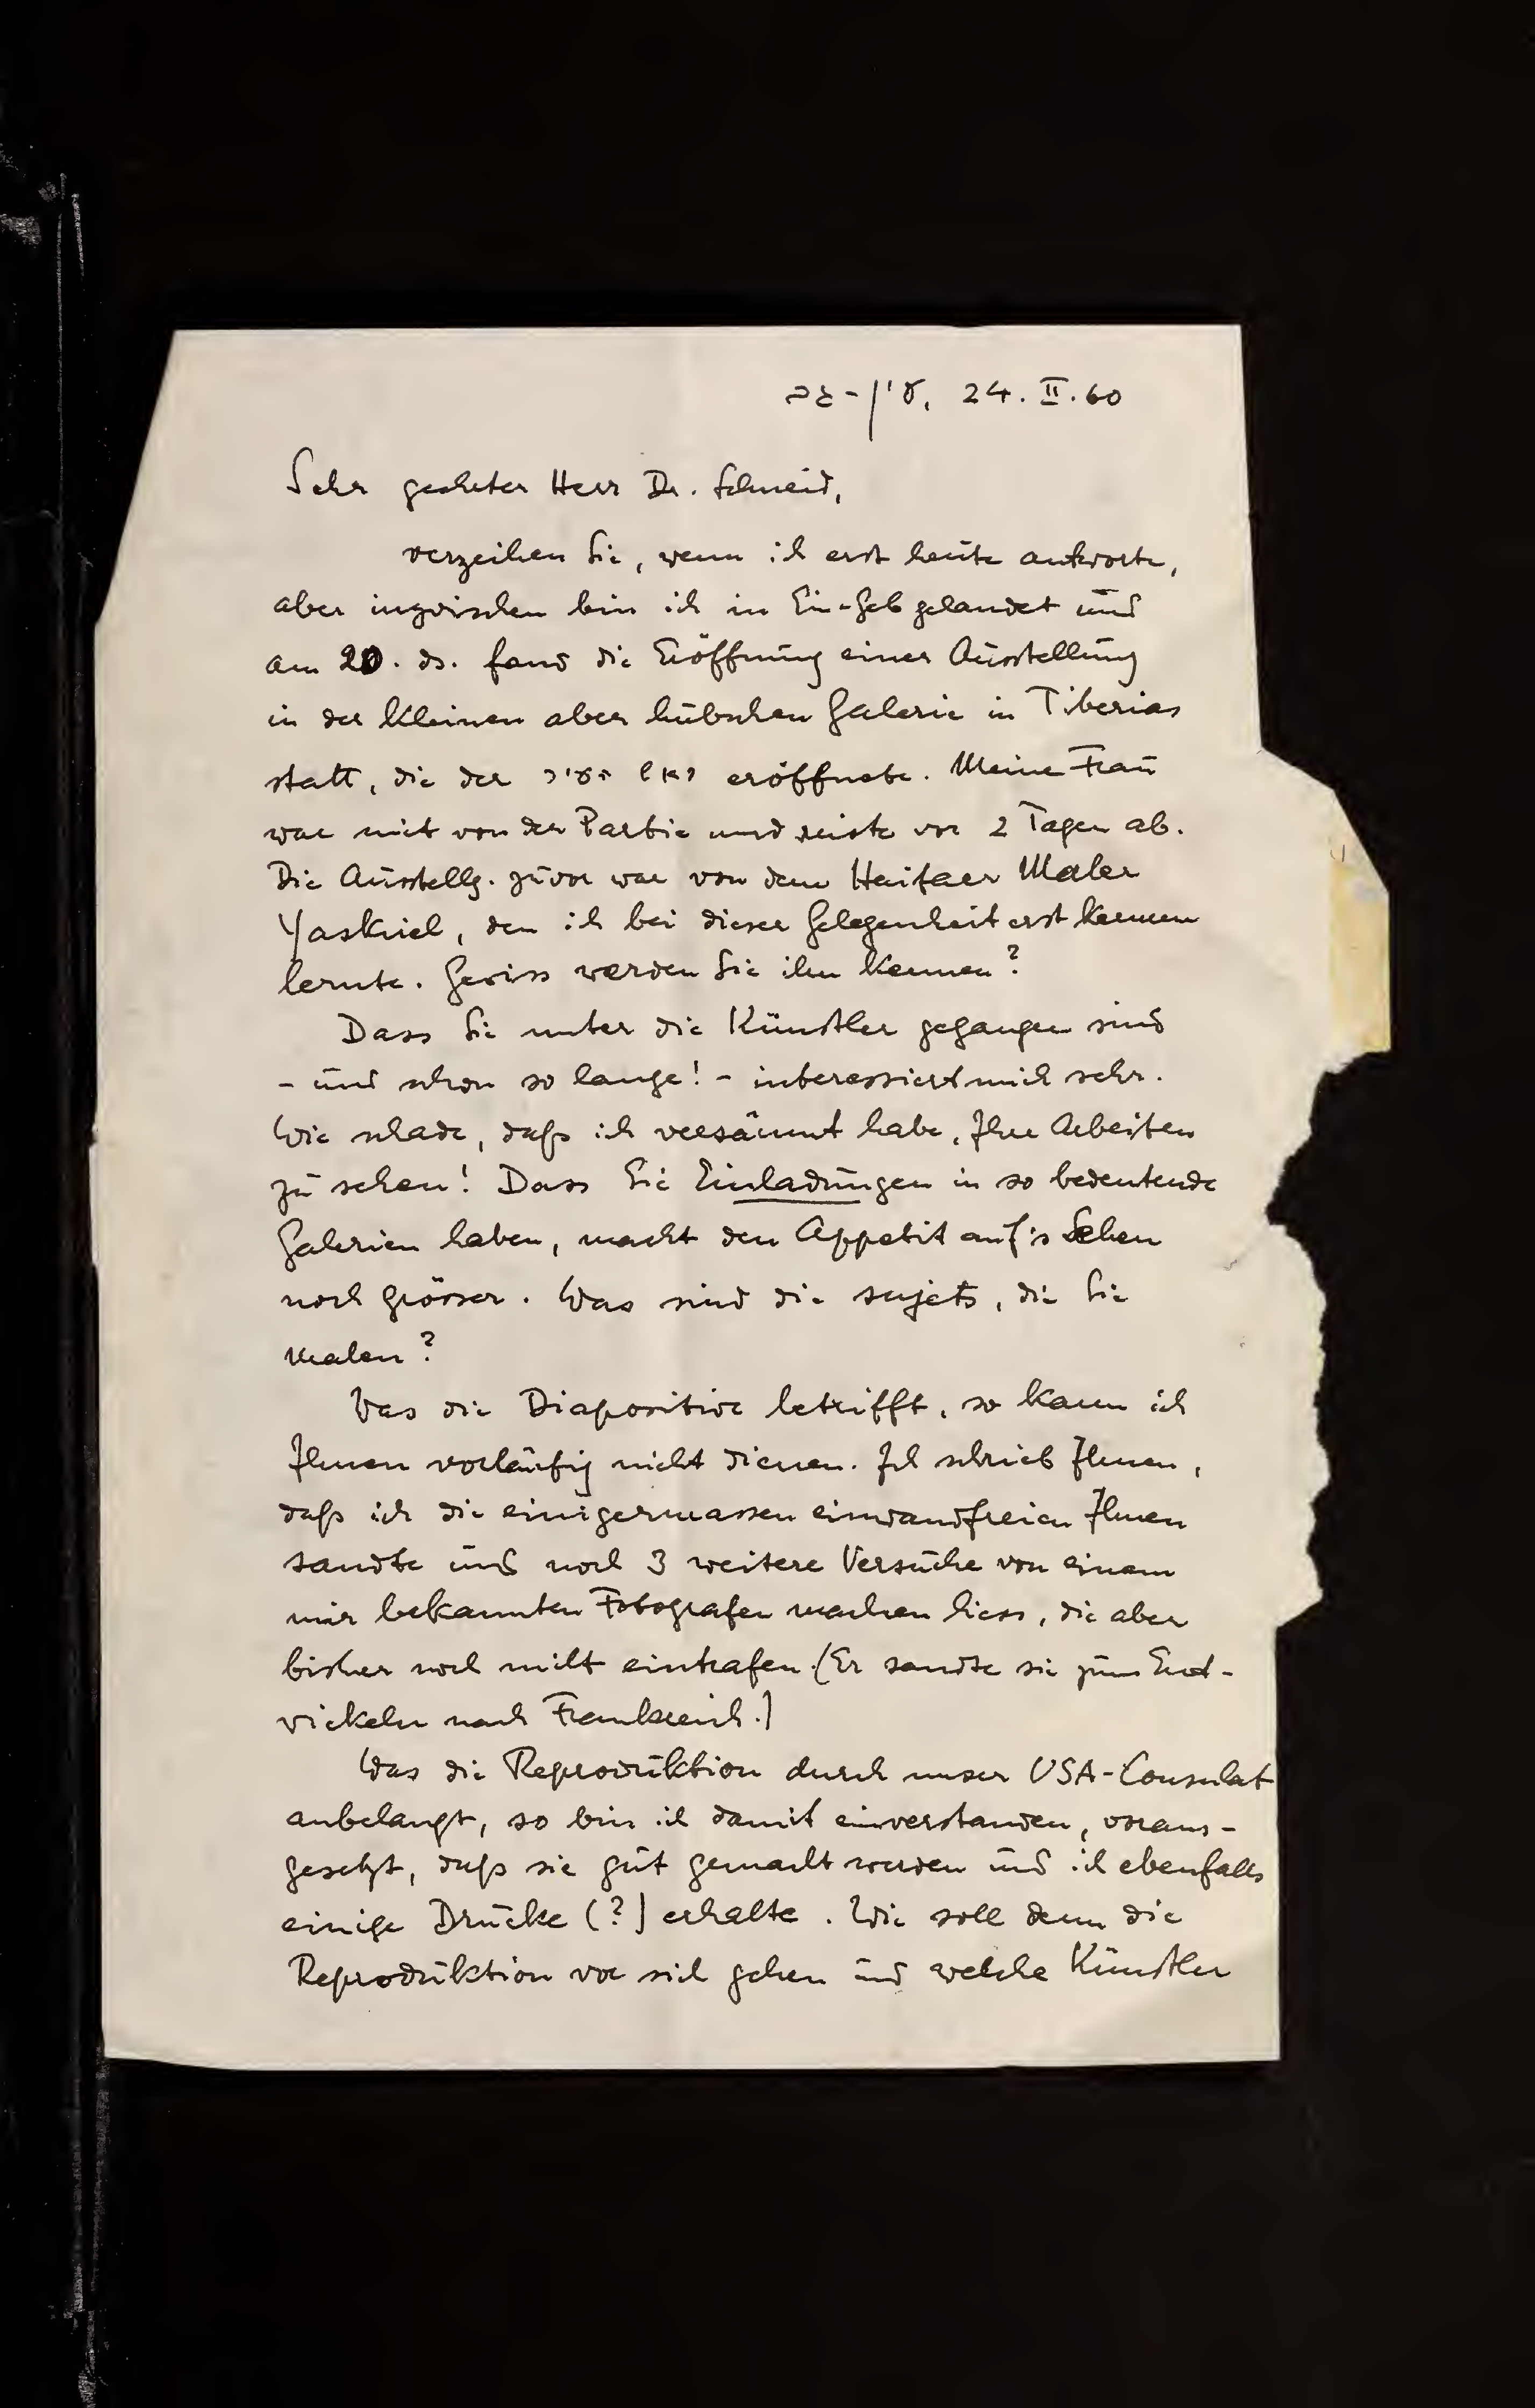 עין-גב, 24. II. 60
Sehr geehrter Herr Dr. Schneid,
verzeihen Sie, wenn ich erst heute antworte,
aber inzwischen bin ich in Ein-Geb gelandet und
am 20. ds. fand die Eröffnung einer Ausstellung
in der kleinen aber hübschen Galerie in Tiberias
statt, die der ראש העיר eröffnete. Meine Frau
war mit von der Partie und reiste vor 2 Tagen ab.
Die Ausstellg. zuvor war von dem Haifaer Maler
Yaskiel, den ich bei dieser Gelegenheit erst kennen
lernte. Gewiss werden Sie ihn kennen?
Dass Sie unter die Künstler gegangen sind
- und schon so lange! - interessiert mich sehr.
Wie schade, daß ich versäumt habe, Ihre Arbeiten
zu sehen! Dass Sie Einladungen in so bedeutende
Galerien haben, macht den Appetit auf's Sehen
noch grösser. Was sind die sujets, die Sie
malen?
Was die Diapositive betrifft, so kann ich
Ihnen vorläufig nicht dienen. Ich schrieb Ihnen,
daß ich die einigermassen einwandfreien Ihnen
sandte und noch 3 weitere Versuche von einem
mir bekannten Fotografen machen liess, die aber
bisher noch nicht eintrafen. (Er sandte sie zum Ent-
wickeln nach Frankreich.)
Was die Reproduktion durch unser USA-Consulat
anbelangt, so bin ich damit einverstanden, voraus-
gesetzt, daß sie gut gemacht werden und ich ebenfalls
einige Drucke (?) erhalte. Wie soll denn die
Reproduktion vor sich gehen und welche Künstler